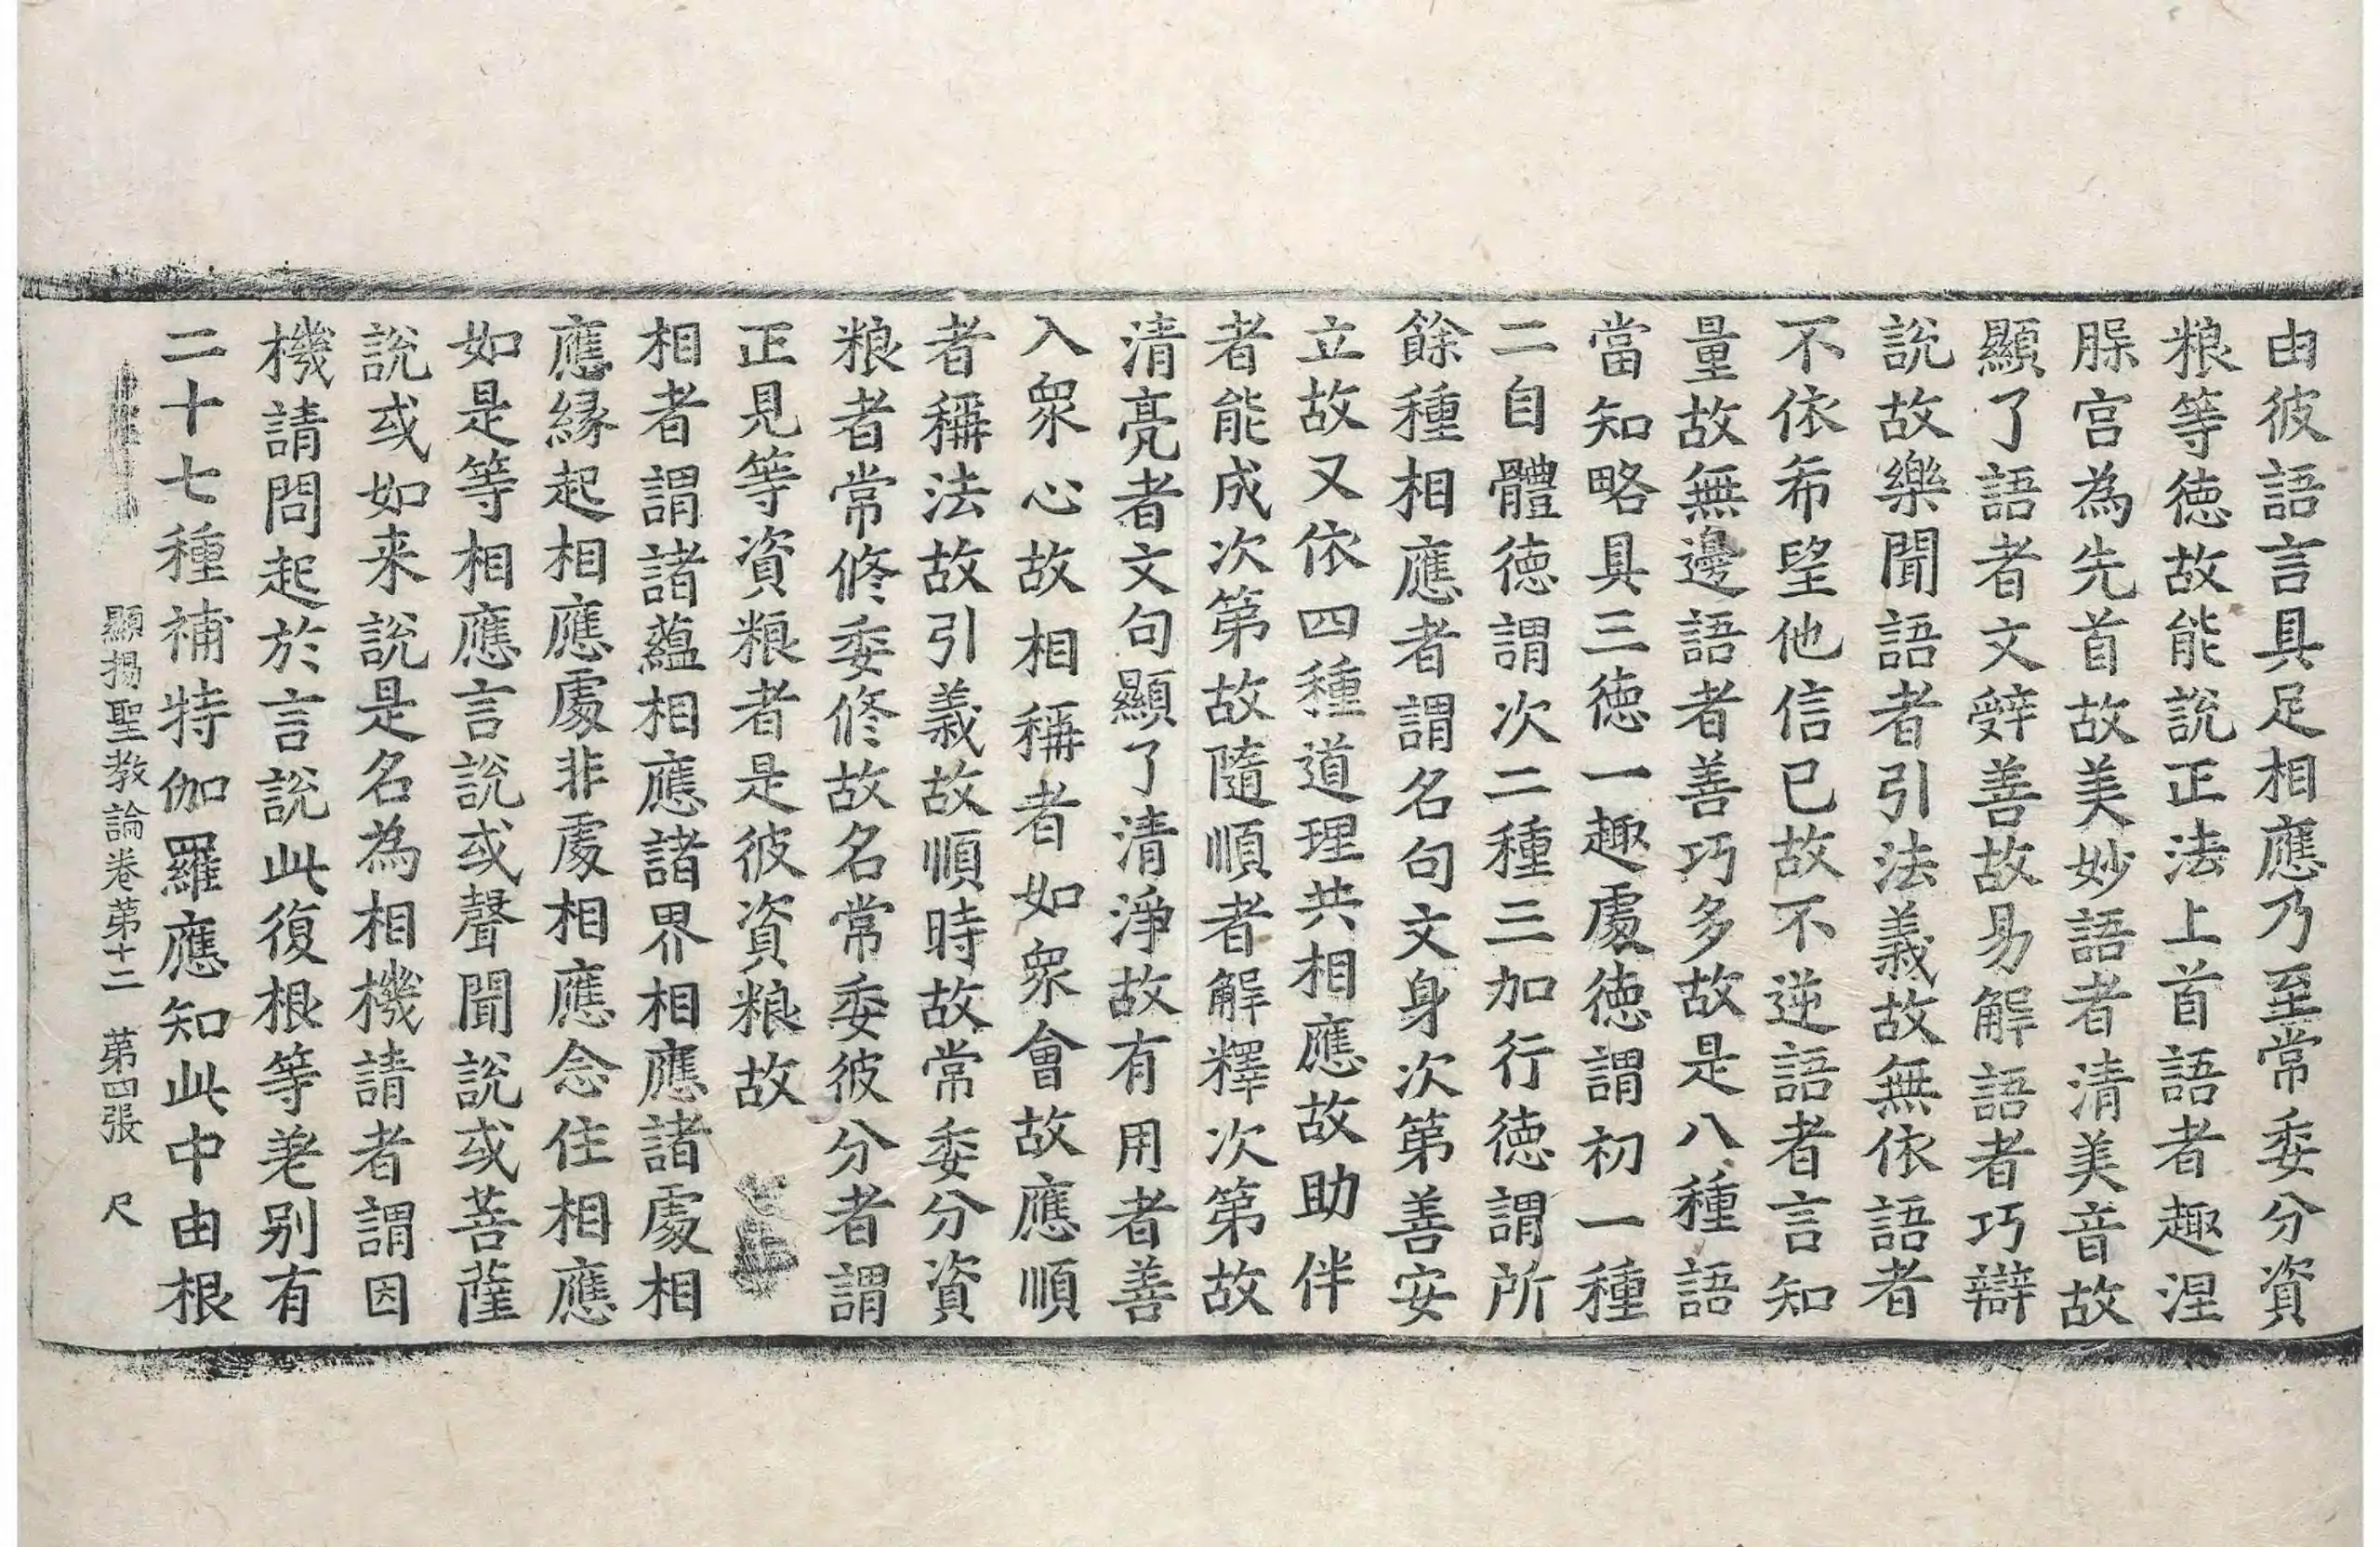 由彼語言具足相應乃至常委分資
粮等德故能說正法上首語者趣涅
脲宫為先首故美妙語者清美音故
顯了語者文辤善故易解語者巧辯
說故樂聞語者引法義故無依語者
不依希望他信已故不逆語者言知
量故無邊語者善巧多故是八種語
當知略具三德一趣處德謂初一種
二自體德謂次二種三加行德謂所
餘種相應者謂名句文身次第善安
立故又依四種道理共相應故助伴
者能成次第故隨順者解釋次第故
清亮者文句顯了清淨故有用者善
入衆心故相稱者如衆會故應順
者稱法故引義故順時故常委分資
粮者常修委修故名常委彼分者謂
正見等資粮者是彼資粮故
相者謂諸蘊相應諸界相應諸處相
應縁起相應處非處相應念住相應
如是等相應言說或聲聞說或菩薩
說或如来說是名為相機請者謂因
機請問起於言說此復根等差别有
二十七種補特伽羅應知此中由根
顯揚聖教論卷第十二 第四張 尺